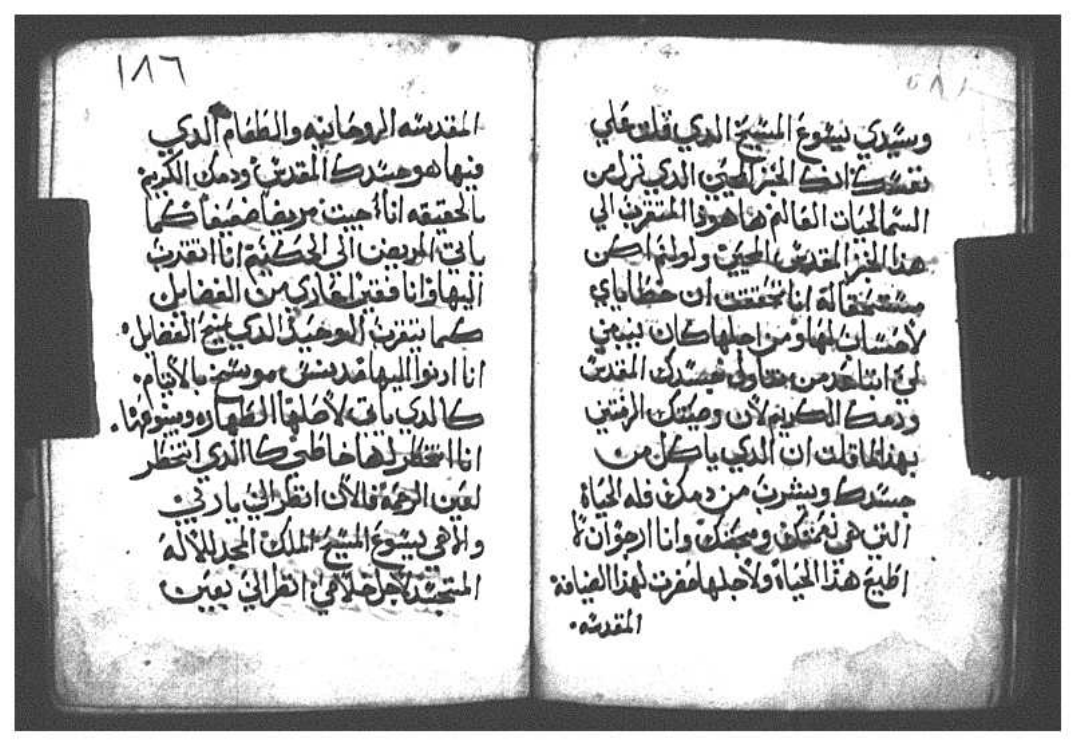 وسيدي يسوع المسيح الدي قلت علي
نفسك انك الخبز المحيي الدي نزل من
السما لحيات العالم هاهودا المتقرب الي
هدا الخبز المقدس المحيي ولو لم اكن
مستحقا له انا تحققت ان خطاياي
لاحساب لها ومن اجلها كان ينبغي
لي ابتاعد من تناولي جسدك المقدس
ودمك الكريم لان وصيتك الزمتني
بهدا لما قلت ان الدي ياكل من
جسدك ويشرب من دمك فله الحياة
التي هي نعمتك ومجدك وانا ارجوا ان لا
اضيع هدا الحياة ولاجلها حضرت لهدا الضيافة
المقدسه
١٨٦
المقدسه الروحانيه والطعام الدي
فيها هو جسدك المقدس ودمك الكريم
بالحقيقه انا جيت مريضا ضعيفا كما
ياتي المريض الي الحكيم انا اتقدمت
اليها وانا فقير عاري من الفضايل
كما يتقرب الوحيد الدي الفضايل
انا ادنوا اليها مدنس موسخ بالاتام
كالدي ياتي لاصلها الطهاره وينبوعها
انا انتظر لها خاطي كالدي انتظر
لعين الرحمة فالان انظر الي يا ربي
والاهي يسوع المسيح الملك المجد للاله
المتجسد لاجل خلاصي انظر الي بعين